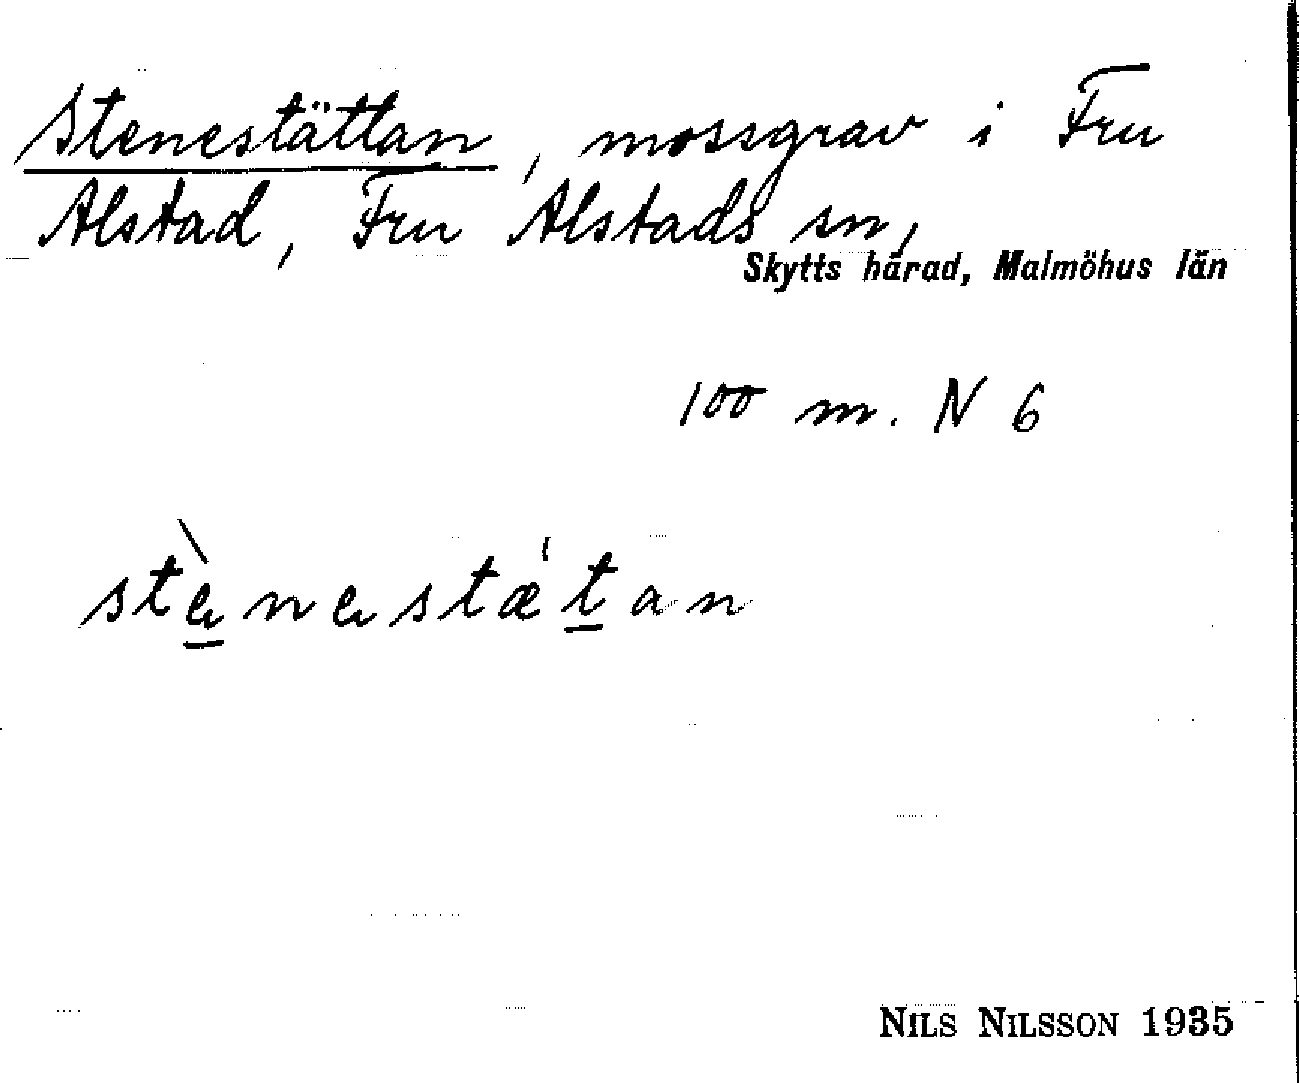 Stenestättan, mossgrav i Fru
Alstad, Fru Alstads sn,
Skytts härad, Malmöhus län
100 m. N 6
stènestæ̍tan
NILS NILSSON 1935